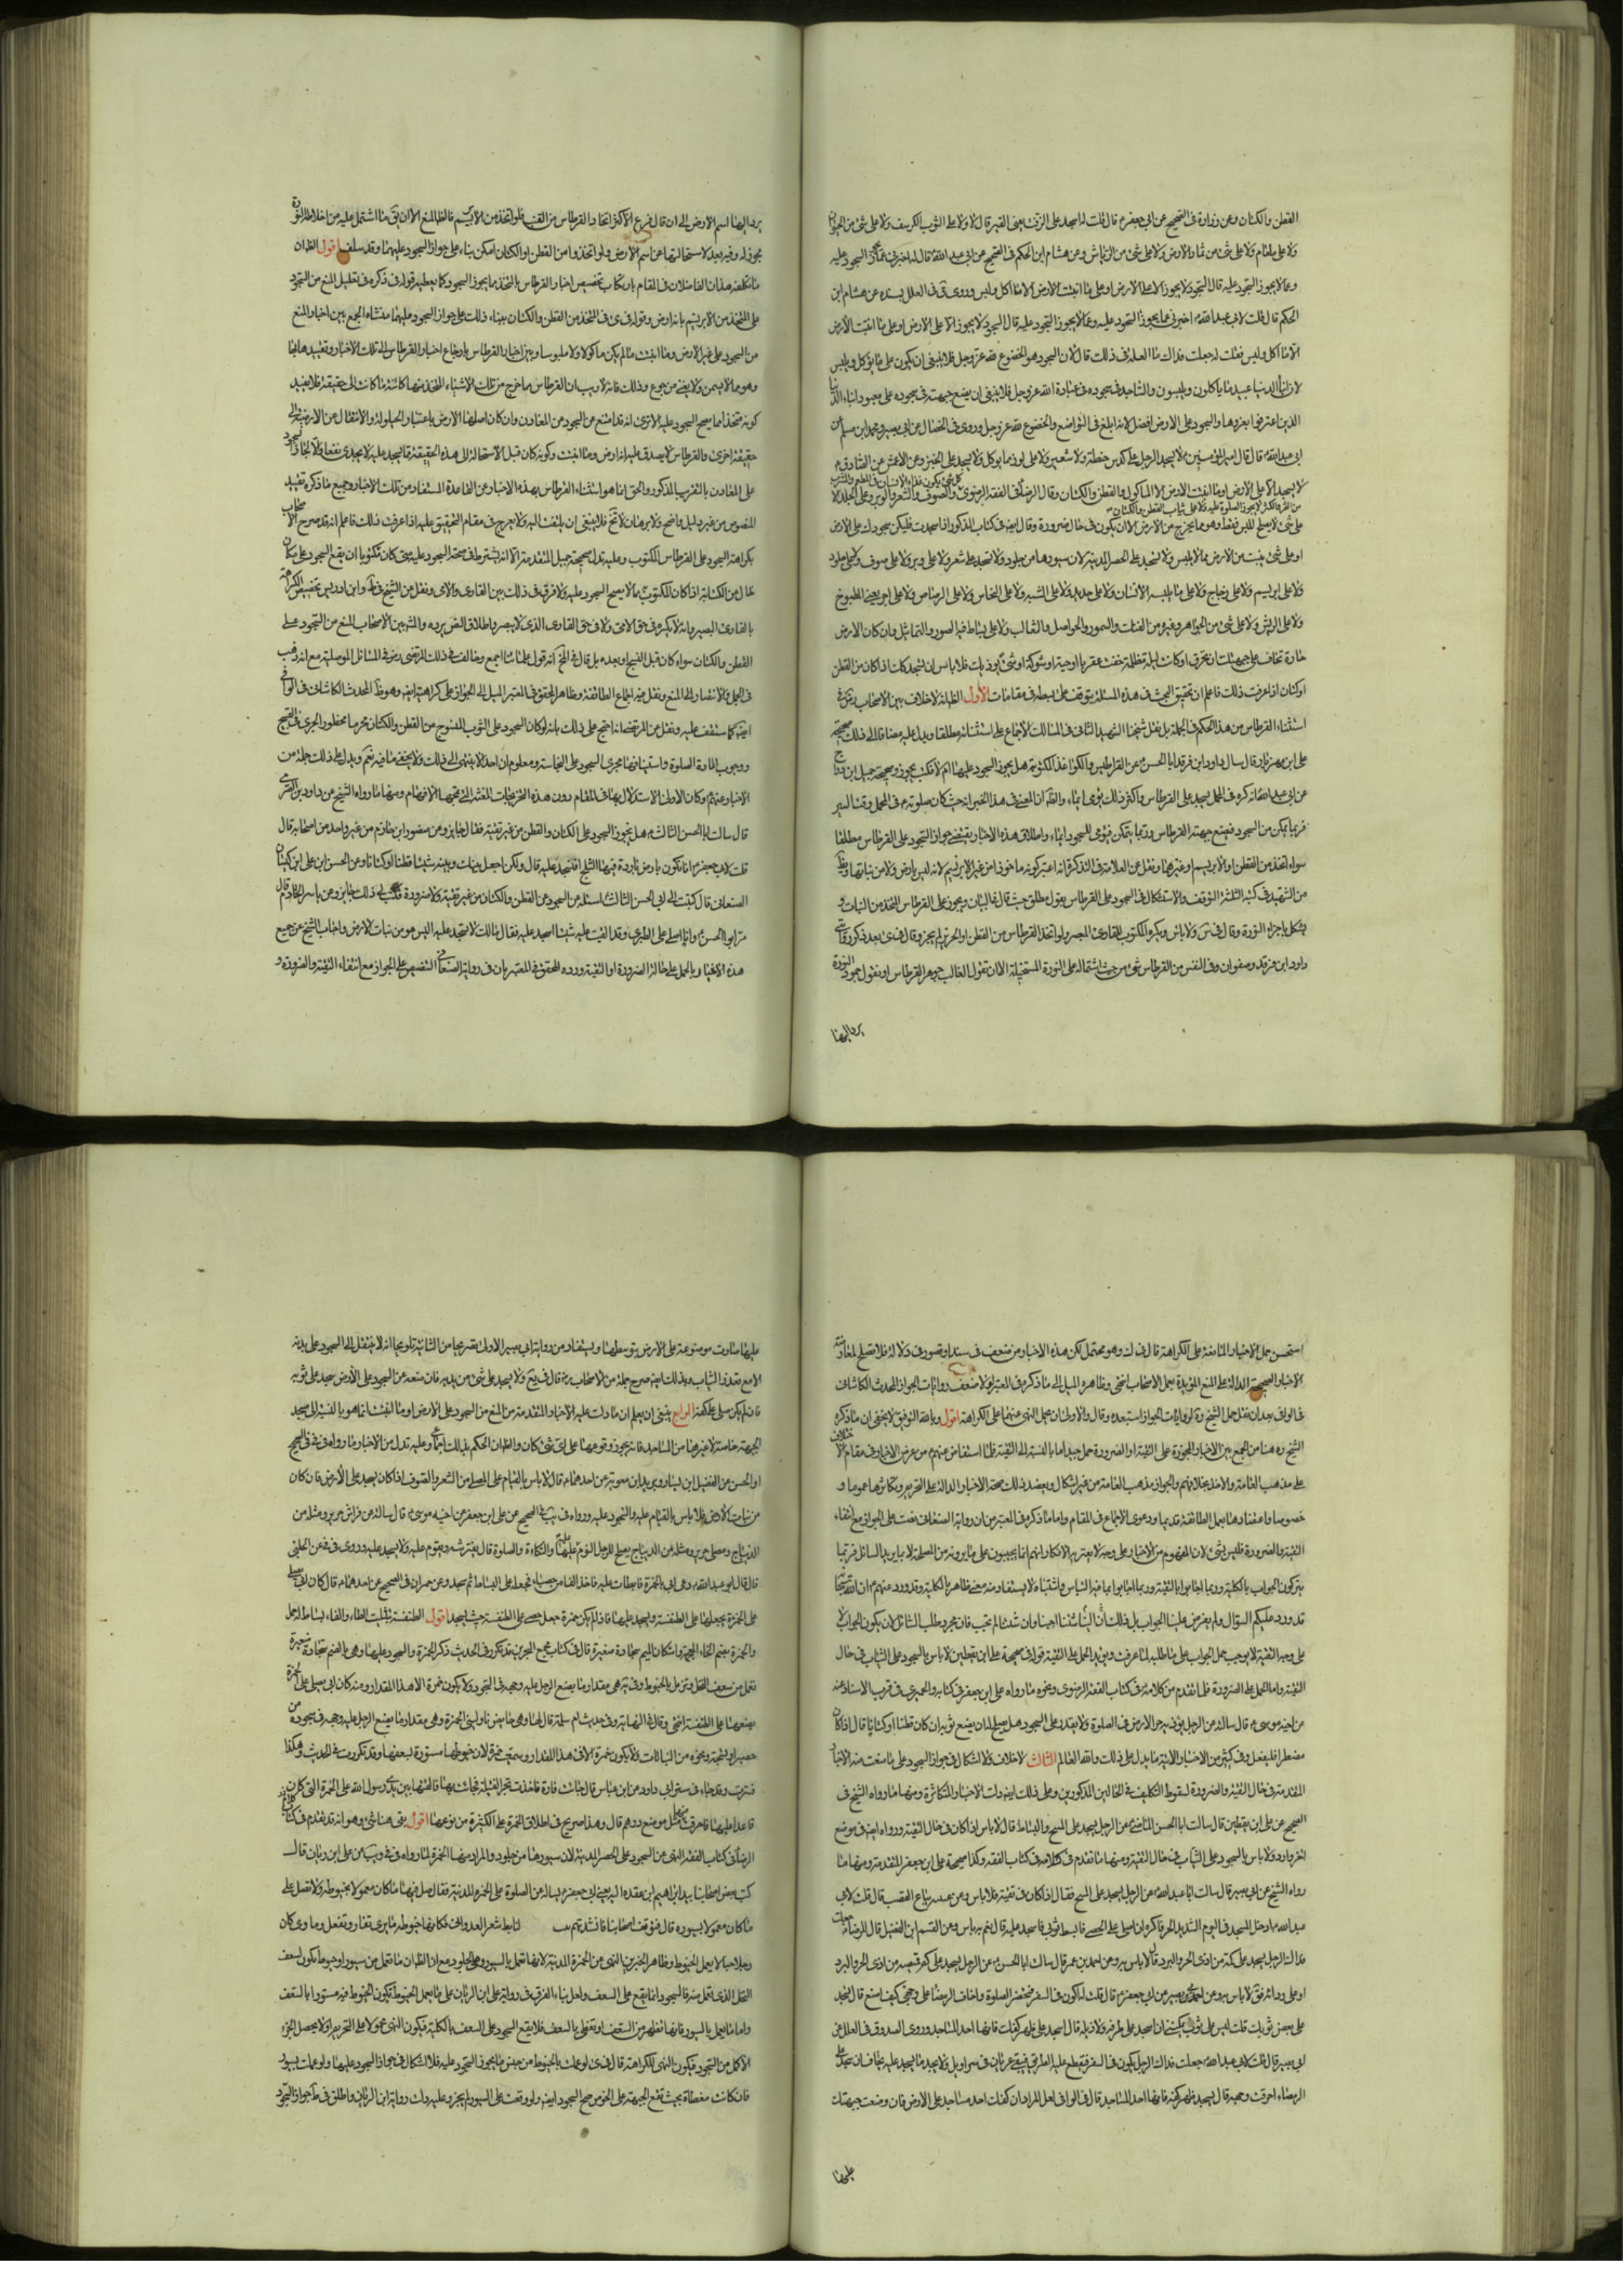 القطن والكتان وعن زرارة في الصحيح عن ابي جعفر ع قال قلت له اسجد على الزفت يعنى القير قال لا ولا على الثوب الكرسف ولا على شئ من الحيوان
ولا على طعام ولا على شئ من ثمار الارض ولا على شئ من الرياش وعن هشام ابن الحكم في الصحيح عن ابي عبد الله ع قال له اخبرني عما يجوز السجود عليه
وعما لا يجوز السجود عليه قال السجود لا يجوز الا على الارض او على ما انبتت الارض الا ما اكل ولبس وروى في العلل بسنده عن هشام ابن
الحكم قال قلت لابي عبد الله ع اخبرني عما يجوز السجود عليه وعما لا يجوز السجود عليه قال السجود لا يجوز الا على الارض او على ما انبتت الارض
الا ما اكل ولبس فقلت له جعلت فداك ما العلة في ذلك قال لان السجود هو الخضوع لله عز وجل فلا ينبغي ان يكون على ما يؤكل ويلبس
لان ابناء الدنيا عبيد ما ياكلون ويلبسون والساجد في سجوده في عبادة الله عز وجل فلا ينبغي ان يضع جبهته في سجوده على معبود ابناء الدنيا
الذين اغتروا بغرورها والسجود على الارض افضل لانه ابلغ في التواضع والخضوع لله عز وجل وروى في الخصال عن ابي بصير ومحمد ابن مسلم عن
ابي عبد الله ع قال قال امير المؤمنين ع لا يسجد الرجل على كدس حنطة ولا شعير ولا على لون مما يوكل ولا يسجد على الخبز وعن الاعمش عن الصادق ع
لا يسجد الا على الارض او ما انبتت الارض الا الماكول والقطن والكتان وقال الرضا في الفقه الرضوى
على شئ لا يصلح للبس فقط وهو مما يخرج من الارض الا ان يكون في حال ضرورة وقال ايضا في كتاب المذكور اذا سجدت فليكن سجودك على الارض
او على شئ ينبت من الارض مما لا يلبس ولا تسجد على الحصر المدنية لان سيورها من جلود ولا تسجد على شعر ولا على وبر ولا على صوف ولا على جلود
ولا على ابريسم ولا على زجاج ولا على ما يلبسه الانسان ولا على حديد ولا على الشبه ولا على النحاس ولا على الرصاص ولا على اجر يعني المطبوخ
ولا على الريش ولا على شئ من الجواهر وغيره من الفنك والسمور والحواصل والثعالب ولا على بساط فيه الصور والتماثيل وان كان الارض
حارة تخاف على جبهتك ان تحرق او كانت ليلة مظلمة خفت عقربا او حية او شوكة او شئ يوذيك فلا باس ان تسجد على كمك اذا كان من القطن
او كتان اذا عرفت ذلك فاعلم ان تحقيق البحث في هذه المسئلة يتوقف على بسطه في مقامات الاول الظ انه لا خلاف بين الاصحاب في
استثناء القرطاس من هذا الحكم في الجملة بل نقل شيخنا الشهيد الثاني في المسالك الاجماع على استثنائه مطلقا ويدل عليه مضافا الى ذلك صحيحة
على ابن مهزيار قال سال داود ابن فرقد ابا الحسن ع عن القراطيس والكواغذ المكتوبة هل يجوز السجود عليها ام لا فكتب يجوز وصحيحة جميل ابن دراج
عن ابي عبد الله
فربما يمكن من السجود فيضع جبهته القرطاس وربما يتمكن فيؤمي للسجود ايماء واطلاق هذه الاخبار يقتضى جواز السجود على القرطاس مطلقا
سواء اتخذ من القطن او الابريسم او غيرهما ونقل عن العلامة في التذكرة انه اعتبر كونه ماخوذا من غير الابريسم لانه ليس بارض ولا من نباتها ويظ
من الشهيد في كتبه الثلثة التوقف والاستشكال في السجود على القرطاس بقول مطلق حيث قال في البيان ويجوز على القرطاس المتخذ من النبات و
يشكل باجزاء النورة وقال في س ولا باس ويكره المكتوب للقارئ المبصر ولو اتخذ القرطاس من القطن او الحرير لم يجز وقال في ى بعد ذكر روايتي
داود ابن فرقد وصفوان وفي النفس من القرطاس شئ من حيث اشتماله على النورة المستحيلة الا ان نقول الغالب جوهر القرطاس او نقول جمود النورة
يرد اليها
يرد اليها اسم الارض الى ان قال فرع الاكثر اتخاذ القرطاس من القنب فلو اتخذ من الابريسم فالظ المنع الا ان يق ما اشتمل عليه من اخلاط النورة
مجوز له وفيه بعد لاستحالتها عن اسم الارض ولو اتخذ من القطن او الكتان امكن بناءه على جواز السجود عليهما وقد سلف اقول الظ ان
ما تكلفه هذان الفاضلان في المقام بارتكاب تخصيص اخبار القرطاس بما اتخذ مما يجوز السجود
على المتخذ من الابريسم بانه ارض وقوله في ى في المتخذ من القطن والكتان ببناء ذلك على جواز السجود عليهما منشاءه الجمع بين اخبار المنع
من السجود على غير الارض وما انبتت مما لم يكن ماكولا ولا ملبوسا وبين اخبار القرطاس بارجاع اخبار القرطاس الى تلك الاخبار وتقييدها بها
وهو مما لا يسمن ولا يغنى من جوع وذلك فانه لا ريب ان القرطاس مما خرج من تلك الاشياء المتخذ منها كائنة ما كانت الى حقيقة
كونه متخذا مما يصح السجود عليه الا ترى انه قد امتنع
حقيقة اخرى والقرطاس لا يصدق عليه انه ارض وما انبتت وكونه كان قبل الاستحالة الى هذه الحقيقة مما يسجد عليه لا يجدى نفعا
على المعادن بالتقريب المذكور والحق انما هو استثناء القرطاس بهذه الاخبار عن القاعدة المستفادة من تلك الاخبار وجميع ما ذكره تقييد
للنصوص من غير دليل واضح ولا برهان لائح فلا ينبغي ان يلتفت اليه ولا يعرج في مقام التحقيق عليه اذا عرفت ذلك فاعلم انه قد صرح الاصحاب
بكراهة السجود على القرطاس المكتوب وعليه تدل صحيحة جميل المتقدمة الا انه يشترط في صحة السجود عليه متى كان مكتوبا ان يقع السجود على مكان
خال من الكتابة اذا كان المكتوب مما لا يصح السجود عليه ولا فرق في ذلك بين القارى والامي ونقل عن الشيخ في ط وابن ادريس تخصيص الكراهة
بالقارى البصير وانه لا يكره في حق الامي ولا في حق القارى الذى لا يبصر واطلاق النص يرده والمشهور بين الاصحاب المنع من السجود على
القطن والكتان سواء كان قبل النسج او بعده بل قال في لف انه قول علمائنا اجمع وخالف في ذلك المرتضى رض في المسائل الموصلية مع انه ذهب
في الجمل والانتصار الى المنع ونقل فيه اجماع الطائفة وظاهر المحقق في المعتبر الميل الى الجواز على كراهته ايضا وهو ظ المحدث الكاشاني في الوافي
ايضا كما ستقف عليه ونقل عن المرتضى انه احتج على ذلك بانه لو كان السجود على الثوب المنسوج من القطن والكتان محرما محظورا لجرى في القبح
ووجوب اعادة الصلوة واستينافها مجرى السجود على النجاسة ومعلوم ان احدا لا ينتهى الى ذلك ولا يخفى ما فيه نعم ويدل على ذلك جملة من
الاخبار
قال سالت ابا الحسن الثالث ع هل يجوز السجود على الكتان والقطن من غير تقية فقال جايز وعن منصور ابن حازم عن غير واحد من اصحابنا قال
قلت لابي جعفر ع انا نكون بارض باردة فيها الثلج افنسجد عليه قال لا ولكن اجعل بينك وبينه شيئا قطنا او كتانا وعن الحسن ابن على ابن كيسان
الصنعانى قال كتبت الى ابي الحسن الثالث ع اسئله عن السجود على القطن والكتان من غير تقية ولا ضرورة فكتب الى ذلك جايز وعن ياسر الخادم قال
مر بي ابو الحسن ع وانا اصلى على الطبرى وقد القيت عليه شيئا اسجد عليه فقال مالك لا تسجد عليه اليس هو من نبات الارض واجاب الشيخ عن جميع
هذه الاخبار بالحمل على حالة الضرورة او التقية ورده المحقق في المعتبر بان في رواية الصنعانى التنصيص على الجواز مع انتفاء التقية والضرورة و
استحسن حمل الاخبار المانعة على الكراهة قال في ك وهو محتمل لكن هذه الاخبار من ضعف في سند او قصور في دلالة فلا تصلح لمعارضة
الاخبار الصحيحة الدالة على المنع المؤيدة بعمل الاصحاب انتهى وظاهره الميل الى ما ذكره في المعتبر لولا ضعف روايات الجواز المحدث الكاشانى
في الوافي بعد ان نقل حمل الشيخ ره لروايات الجواز استبعده وقال والاولى ان يحمل النهى عنهما على الكراهة اقول وبالله التوفيق لا يخفى ان ما ذكره
الشيخ ره هنا من الجمع بين الاخبار المجوزة على التقية او الضرورة حمل جيد اما بالنسبة الى التقية فلما استفاض عنهم من عرض الاخبار في مقام الاختلاف
على مذهب العامة والاخذ بخلافهم والجواز مذهب العامة من غير اشكال ويعضد ذلك صحة الاخبار الدالة على التحريم وتكاثرها عموما و
خصوصا واعتضادها بعمل الطائفة قديما ودعوى الاجماع في المقام واما ما ذكره في المعتبر من ان رواية الصنعانى نصت على الجواز مع انتفاء
التقية والضرورة فليس بشئ لان المفهوم من الاخبار على وجه لا يعتريه الانكار انهم انما يجيبون على ما يرونه من المصلحة لا بما يريد السائل فربما
يتركون الجواب بالكلية وربما اجابوا بالتقية وربما اجابوا بما فيه التباس واشتباه لا يستفاد منه معنى ظاهر بالكلية وقد ورد عنهم ع ان الله سبحانه
قد ورد عليكم السؤال ولم يفرض علينا الجواب بل ذلك الينا ان شئنا اجبنا وان شئنا لم نجب فان مجرد طلب السائل ان يكون الجواب لا
على وجه التقية لا يوجب حمل الجواب على ما طلبه لما عرفت ويؤيد الحمل على التقية قوله في صحيحة على ابن يقطين لا باس بالسجود على الثياب في حال
التقية واما الحمل على الضرورة فلما تقدم من كلامه في كتاب الفقه الرضوى ونحوه ما رواه على ابن جعفر في كتابه والحميرى في قرب الاسناد عنه
عن اخيه موسى ع قال سالته عن الرجل يؤذيه حر الارض في الصلوة ولا يقدر على السجود هل يصلح له ان يضع ثوبه ان كان قطنا او كتانا قال اذا كان
مضطرا فليفعل وفي كثير من الاخبار الاتية ما يدل على ذلك والله العالم الثالث لا خلاف ولا اشكال في جواز السجود على ما منعت منه الاخبار
المتقدمة في حال التقية والضرورة لسقوط التكليف في الحالين المذكورين وعلى ذلك ايضا دلت الاخبار المتكاثرة ومنها ما رواه الشيخ في
الصحيح عن على ابن يقطين قال سالت ابا الحسن الماضى ع عن الرجل يسجد على المسح والبساط قال لا باس اذا كان في حال التقية ورواه ايضا في موضع
اخر وزاد ولا باس بالسجود على الثياب في حال التقية ومنها ما تقدم في كلامه في كتاب الفقه وكذا صحيحة على ابن جعفر المتقدمة ومنها ما
رواه الشيخ عن ابي بصير قال سالت ابا عبد الله ع عن الرجل يسجد على المسح فقال اذا كان في تقية فلا باس وعن عيينة بياع القصب قال قلت لابي
عبد الله ع ادخل المسجد في اليوم الشديد الحر فاكره ان اصلى على الحصى فابسط ثوبي فاسجد عليه قال نعم ليس به باس وعن القسم ابن الفضيل قال قلت للرضا ع جعلت
فداك الرجل يسجد على كمه من اذى الحر والبرد قال لا باس به وعن احمد ابن عمر قال سالت ابا الحسن ع عن الرجل يسجد على كم قميصه من اذى الحر والبرد
او على ردائه فق لا باس به وعن ابي بصير عن ابي جعفر ع قال قلت له اكون في السفر فتحضر الصلوة واخاف الرمضاء على وجهى كيف اصنع قال تسجد
على بعض ثوبك قلت ليس على ثوب يمكننى ان اسجد على طرفه ولا ذيله قال اسجد على ظهر كفك فانها احد المساجد وروى الصدوق في العلل عن
ابي بصير قال قلت لابي عبد الله ع جعلت فداك الرجل يكون في السفر فيقطع عليه الطريق فيبقى عريانا في سراويل ولا يجد ما يسجد عليه يخاف ان سجد على
الرمضاء احرقت وجهه قال يسجد على ظهر كفه فانها احد المساجد قال في الوافي لعل المراد ان كفك احد مساجد على الارض فان وضعت جبهتك
عليها
عليها صارت موضوعة على الارض بتوسطها ويستفاد من رواية ابي بصير الاولى تصريحا من الثانية تلويحا انه لا ينتقل الى السجود على يديه
الا مع تعذر الثياب وبذلك ايضا صرح جملة من الاصحاب ره قال في يع ولا يسجد على شئ من بدنه فان منعه عن السجود على الارض سجد على ثوبه
فان لم يكن سجد على كفه الرابع ينبغي ان يعلم ان ما دلت عليه الاخبار المتقدمة من المنع من السجود على الارض او ما انبتت انما هو بالنسبة الى مسجد
الجبهة خاصة لا غيرها من المساجد فانه يجوز وقوعها على اى شئ كان والظ ان الحكم بذلك اجماعى وعليه تدل من الاخبار ما رواه في في في الصحيح
او الحسن عن الفضيل ابن يسار وبريد ابن معوية عن احدهما ع قال لا باس بالقيام على المصلى من الشعر والصوف اذا كان يسجد على الارض فان كان
من نبات الارض فلا باس بالقيام عليه والسجود عليه ورواه في يب في الصحيح عن على ابن جعفر عن اخيه موسى ع قال سالته عن فراش حرير ومثله من
الديباج ومصلى حرير ومثله من الديباج يصلح للرجل النوم عليه والتكاءة والصلوة قال يفترشه ويقوم عليه ولا يسجد عليه وروى في في عن الحلبى
قال قال ابو عبد الله ع دعى ابي بالخمرة فابطأت عليه فاخذ كفا من حصباء فجعله على البساط ثم سجد وعن حمران في الصحيح عن احدهما ع قال كان ابي يصلى
على الخمرة يجعلها على الطنفسة ويسجد عليها فاذا لم يكن خمرة جعل حصى على الطنفسة حيث يسجد اقول الطنفسة بتثليث الطاء والفاء بساط له خمل
والخمرة بضم الخاء المعجمة واسكان الميم سجادة صغيرة قال في كتاب مجمع البحرين قد تكرر في الحديث ذكر الخمرة والسجود عليها وهى بالضم سجادة صغيرة
تعمل من سعف النخل وتزمل بالخيوط وفي النهاية هى مقدار ما يضع الرجل عليه وجهه في السجود ولا يكون خمرة الا هذا المقدار ومنه كان ابي يصلى على الخمرة
يضعها على الطنفسة انتهى وقال في النهاية وفي حديث ام سلمة قال لها وهى حايض ناولينى الخمرة وهى مقدار ما يضع الرجل عليه وجهه في سجوده من
حصير او نسيجة ونحوه من النباتات ولا يكون خمرة الا في هذا المقدار وسميت خمرة لان خيوطها مستورة بسعفها وقد تكررت في الحديث وهكذا
فسرت وقد جاء في سنن ابي داود عن ابن عباس قال جاءت فارة فاخذت تجر الفتيلة فجاءت بها فالقتها بين يدى رسول الله على الخمرة التى كان
قاعدا عليها فاحرقت منها مثل موضع درهم قال وهذا صريح في اطلاق الخمرة على الكبيرة من نوعها اقول بقى هنا شئ وهو انه قد تقدم في كلام
الرضا في كتاب الفقه النهى عن السجود على الحصر المدنية لان سيورها من جلود والمراد منها الخمرة لما رواه في في ويب عن على ابن ريان قال
كتب بعض اصحابنا بيد ابراهيم ابن عقبة اليه يعني ابي جعفر ع يساله عن الصلوة على الخمرة المدنية فقال صل فيها ما كان معمولا بخيوطة ولا تصل على
ما كان معمولا بسيوره قال فتوقف اصحابنا فانشدتهم بيت لتابط شرا العدوانى فكانها خيوطة مارى تغار وتفتل ومارى كان
رجلا حبالا يعمل الخيوط وظاهر الخبرين النهى عن الخمرة المدنية لانها تعمل بالسيور وهى الجلود مع ان الظ ان ما تعمل من سيور او خيوط تكون لسعف
النخل الذى تعمل منه فالسجود انما يقع على السعف ولعل بناء الفرق في رواية على ابن الريان على ما يعمل الخيوط تكون الخيوط فيه مستورة بالسعف
واما ما يعمل بالسيور فانها تظهر من السقف او تغطى بالسعف فلا يقع السجود على السعف بالكلية فيكون النهى محمولا على التحريم او لا يحصل الجزء
الاكمل من السجود فيكون النهى للكراهة قال في ى لو عملت بالخيوط من جنس ما يجوز السجود عليه فلا اشكال في جواز السجود عليها ولو عملت بسيور
فان كانت مغطاة بحيث تقع الجبهة على الخوص صح السجود ايضا ولو وقعت على السيور لم يجز وعليه دلت رواية ابن الريان واطلق في ط جواز السجود